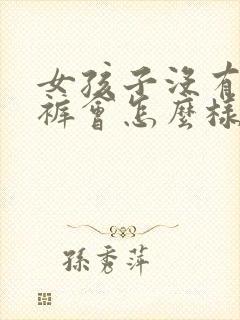 女孩子没有
裤會怎麼樣
孫秀萍